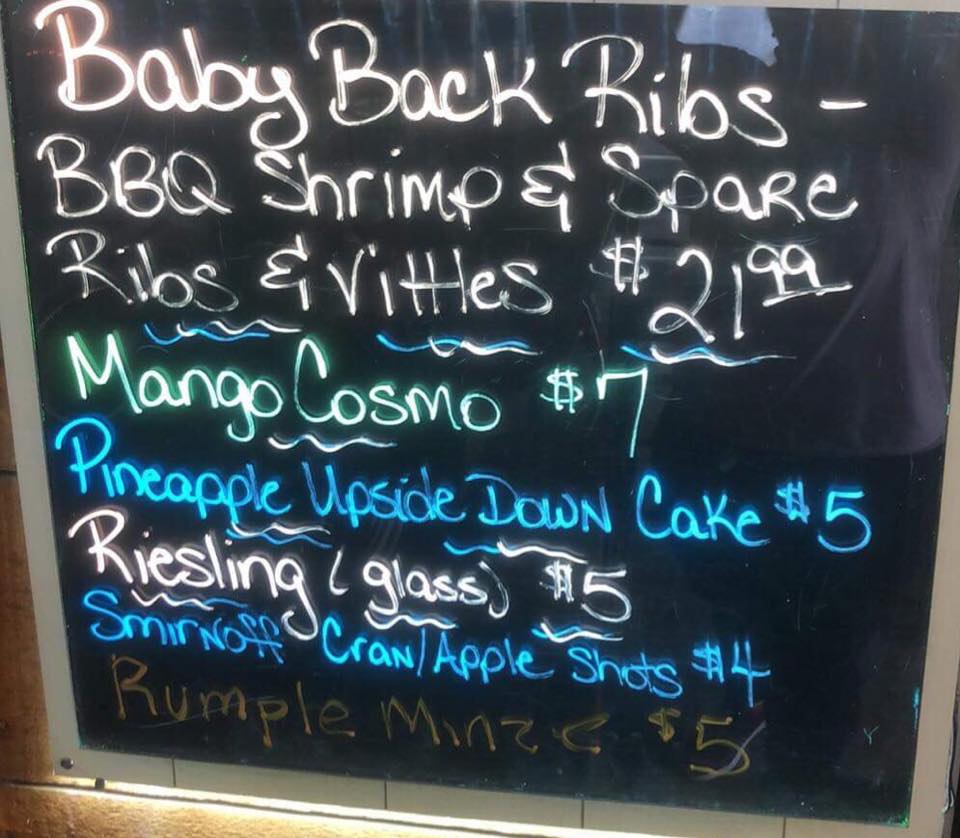 Baby Back Ribs -
BBQ Shrimp & Spare
Ribs & Vittles $21.99
Mango Cosmo $7
Pineapple Upside Down Cake $5
Riesling (glass) $5
Smirnoff Cran/Apple Shots $4
Rumple Minze $5